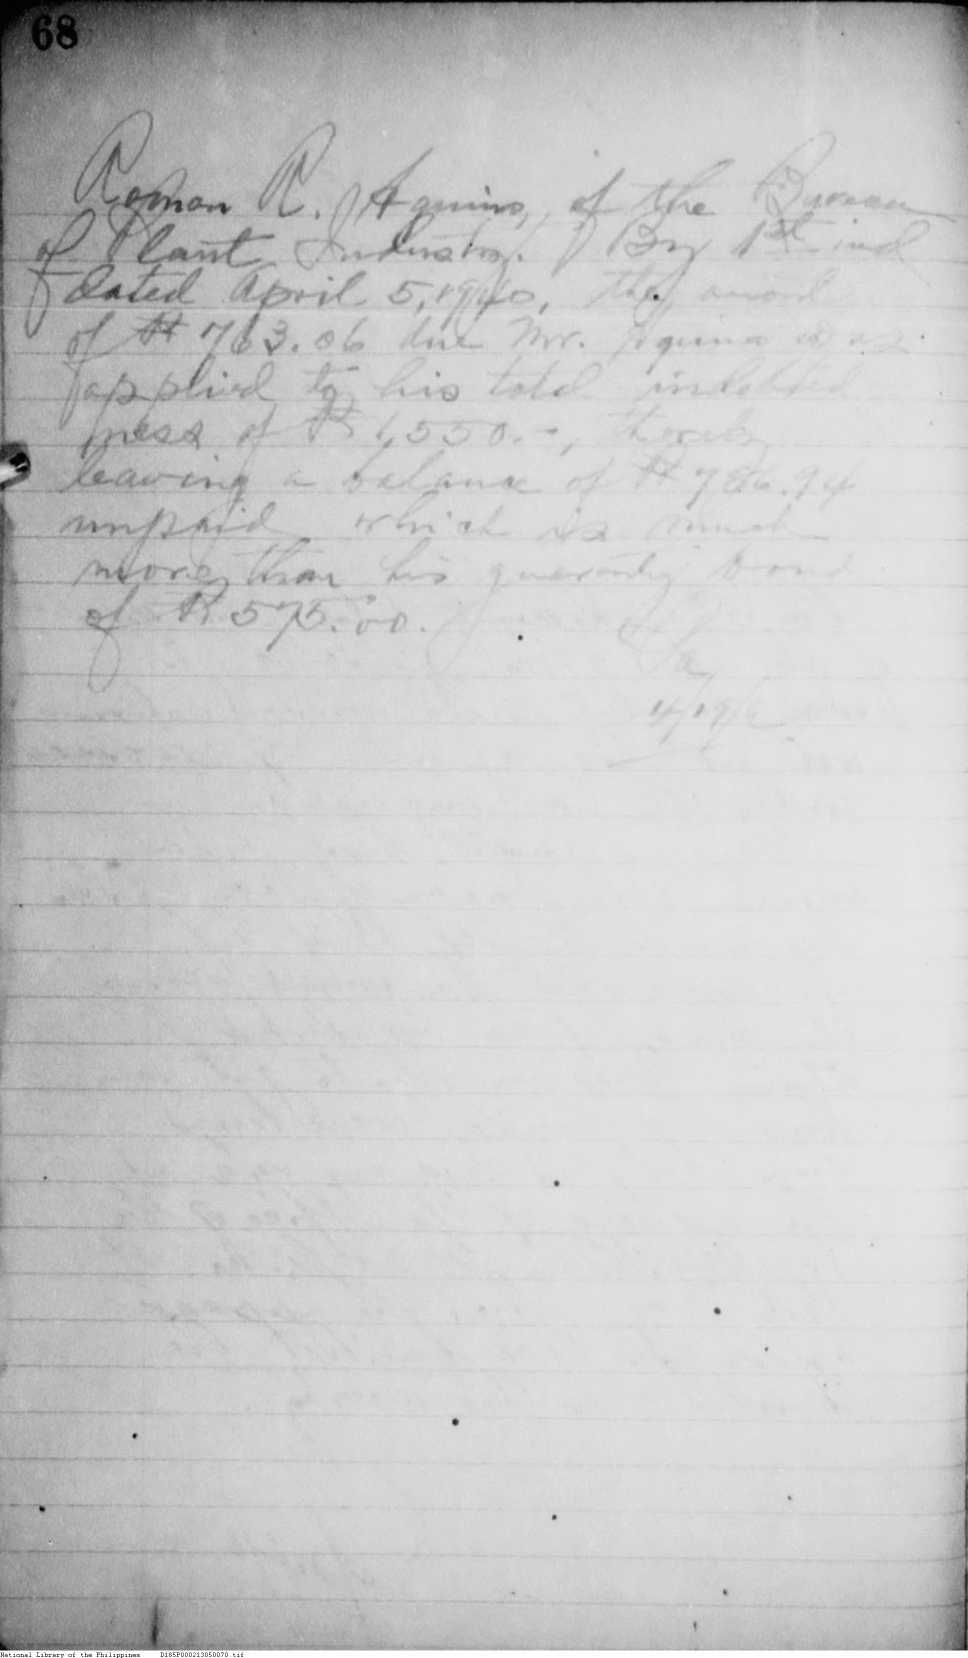 68
Roman R. Aquino, of the Bureau
of Plant Industry. By 1st ind
dated April 5, 1940, the award
of ₱763.06 due Mr. Aquino was
applied to his total indebted
ness of ₱1,550.-, thereby
leaving a balance of ₱786.94
unpaid which is much
more than his guaranty bond
of ₱575.00.
National Library of the Philippines D185P000213050070.tif